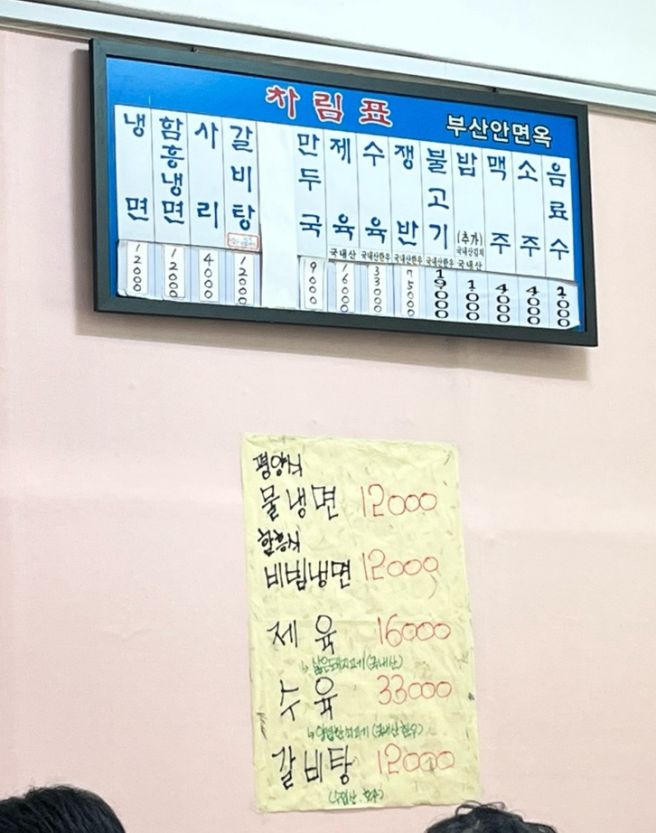 차림표
부산안면옥
냉면 12000
함흥냉면 12000
사리 4000
갈비탕 12000
만두국 9000
제육 국내산 16000
수육 국내산한우 33000
쟁반 국내산한우 75000
불고기 국내산한우 19000
밥 (추가) 국내산김치 국내산 1000
맥주 4000
소주 4000
음료수 2000
평양식
물냉면 12000
함흥식
비빔냉면 12000
제육 16000
↳ 삶은돼지고기 (국내산)
수육 33000
(국내산 한우)
갈비탕 12000
(수입산. 호주)